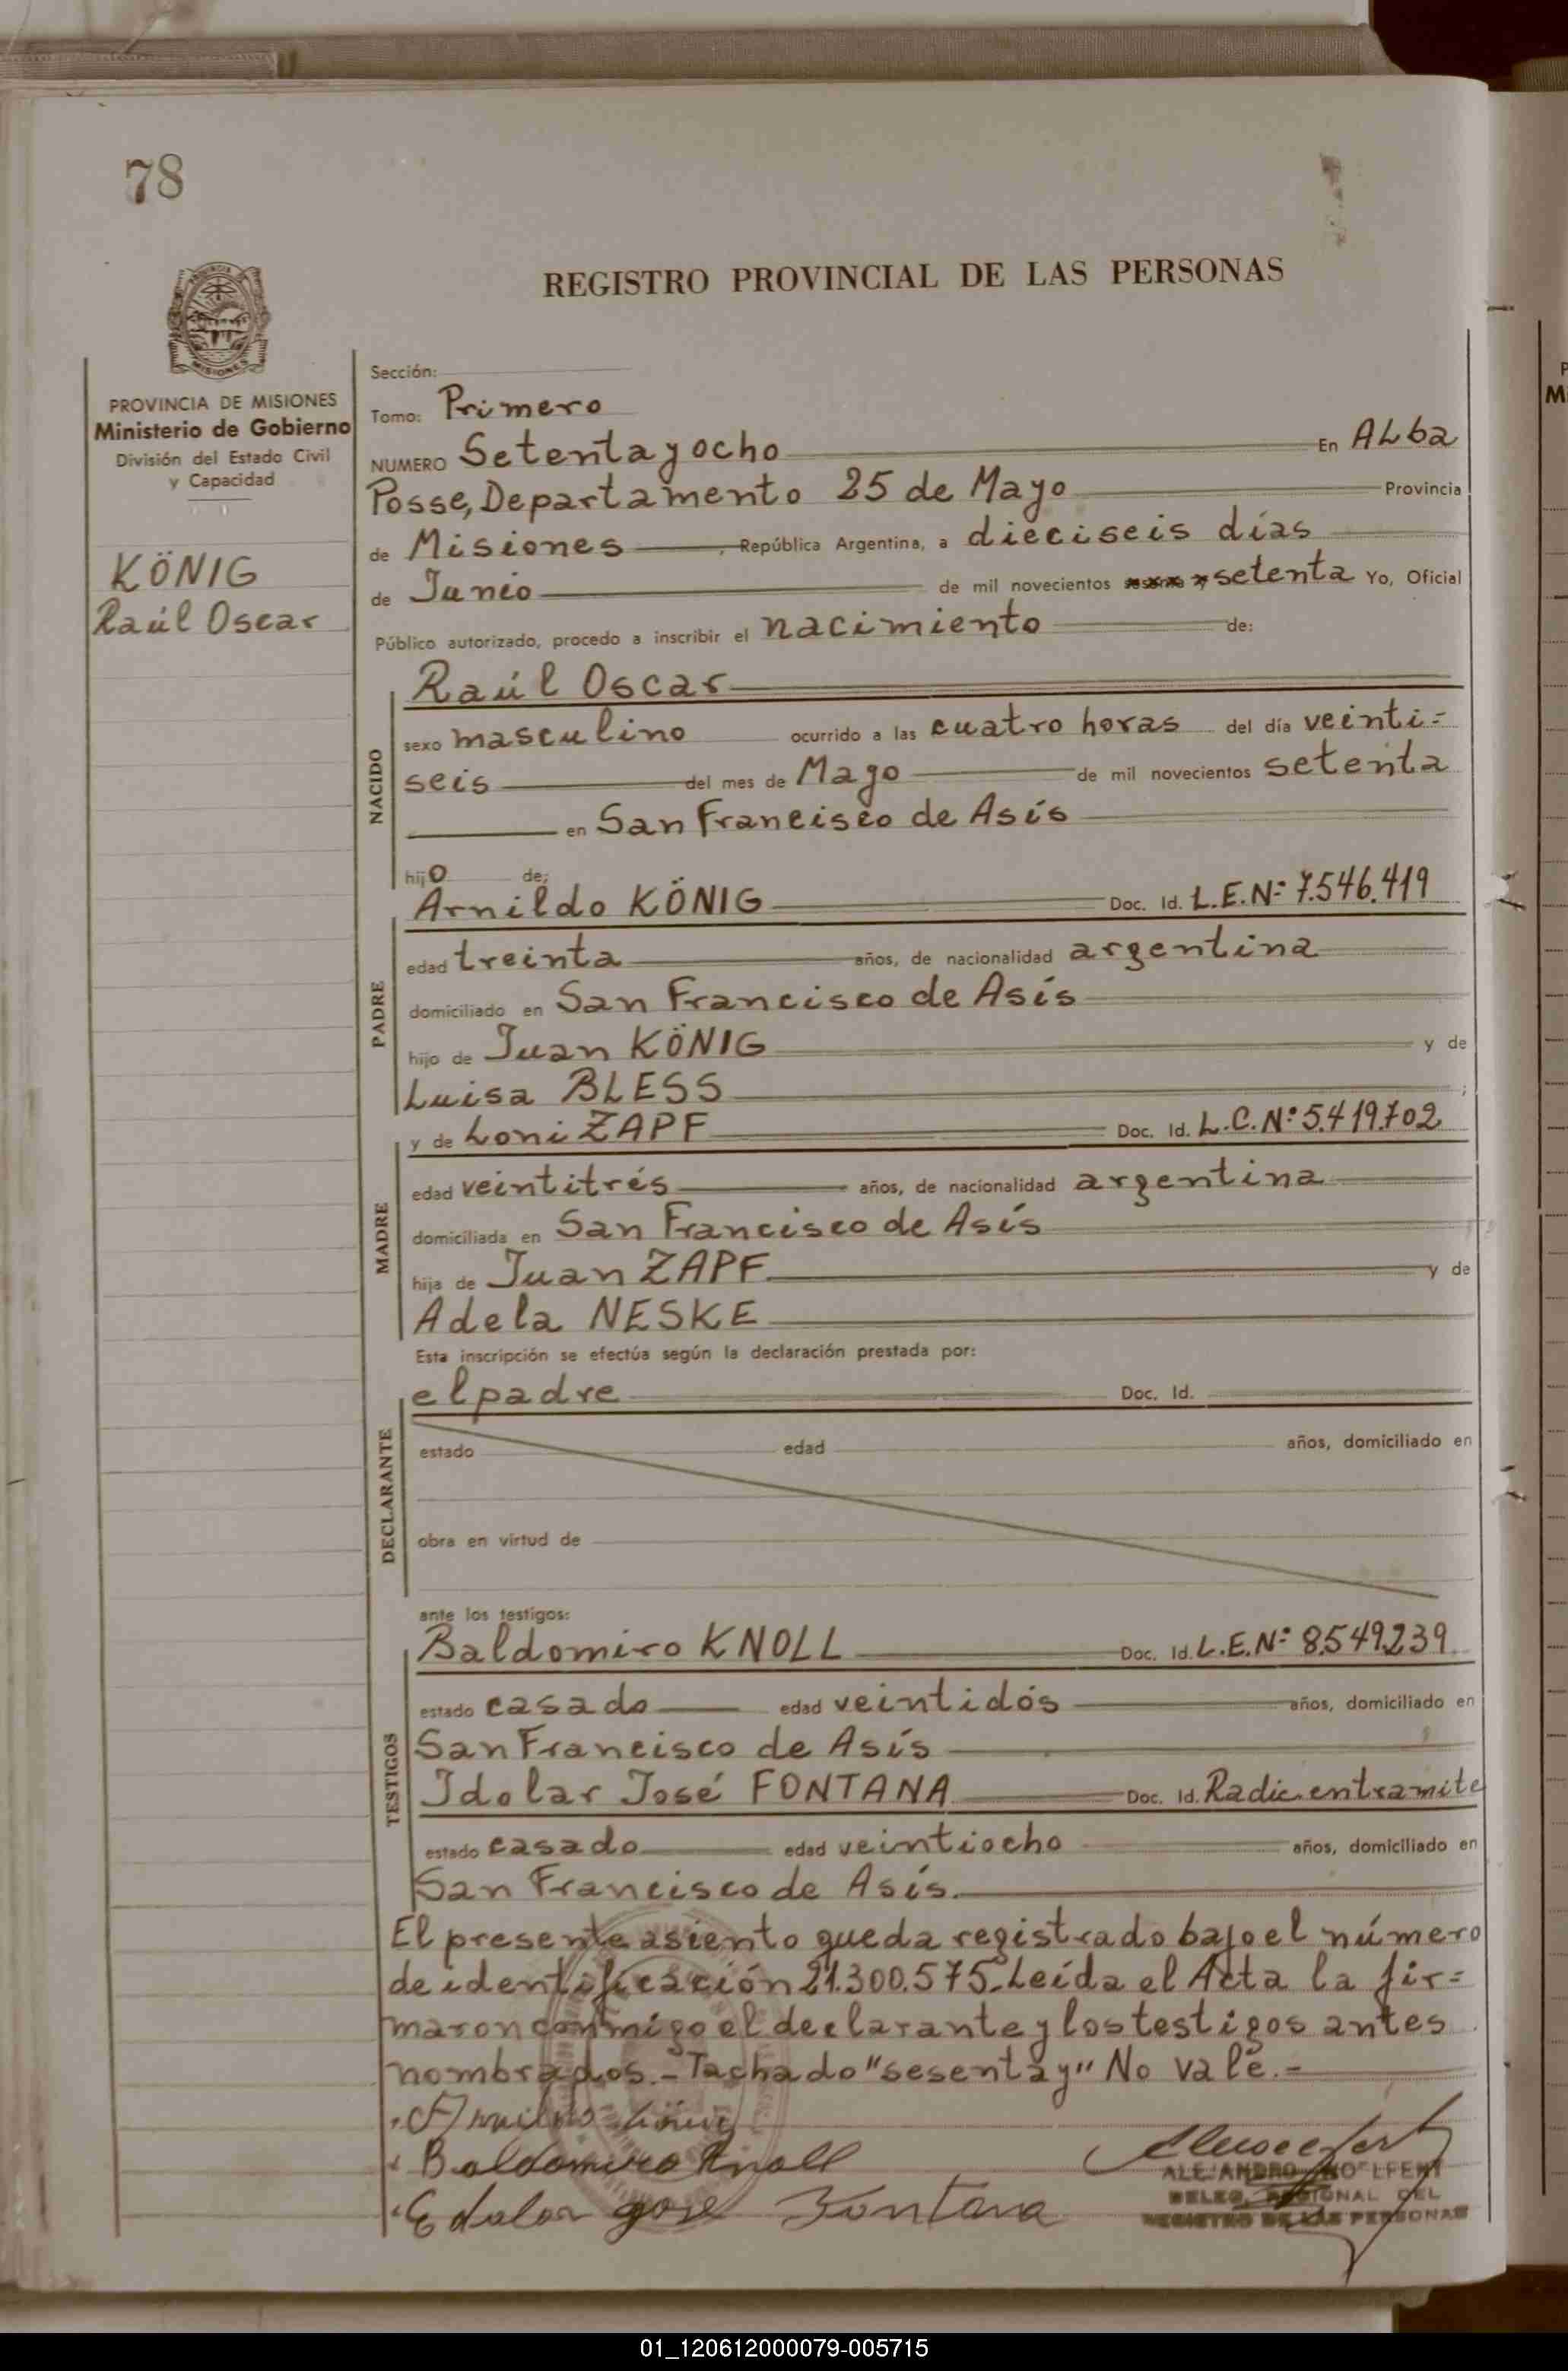 78
REGISTRO PROVINCIAL DE LAS PERSONAS
MISIONES
PROVINCIA DE MISIONES
Ministerio de Gobierno
División del Estado Civil
y Capacidad
KÖNIG
Raúl Oscar
Sección:
Tomo: Primero
NUMERO Setenta y ocho En ALba
Posse, Departamento 25 de Mayo Provincia
de Misiones, República Argentina, a dieciseis días
de Junio de mil novecientos setenta Yo, Oficial
Público autorizado, procedo a inscribir el nacimiento de:
NACIDO
Raúl Oscar
sexo masculino ocurrido a las cuatro horas del día veinti=
seis del mes de Mayo de mil novecientos setenta
en San Francisco de Asís
hijo de;
PADRE
Arnildo KÖNIG Doc. Id. L.E.Nº 7.546.419
edad treinta años, de nacionalidad argentina
domiciliado en San Francisco de Asís
hijo de Juan KÖNIG y de
Luisa BLESS ;
MADRE
y de Loni ZAPF Doc. Id. L.C.Nº 5.419.702
edad veintitrés años, de nacionalidad argentina
domiciliada en San Francisco de Asís
hija de Juan ZAPF y de
Adela NESKE
Esta inscripción se efectúa según la declaración prestada por:
DECLARANTE
el padre Doc. Id.
estado edad años, domiciliado en
obra en virtud de
ante los testigos:
TESTIGOS
Baldomiro KNOLL Doc. Id. L.E.Nº 8.549.239
estado casado edad veintidós años, domiciliado en
San Francisco de Asís
Idolar José FONTANA Doc. Id. Radic. en tramite
estado casado edad veintiocho años, domiciliado en
San Francisco de Asís.
El presente asiento queda registrado bajo el número
de identificación 21.300.575.- Leída el Acta la fir=
maron conmigo el declarante y los testigos antes
nombrados.- Tachado "sesenta y" No vale.-
Arnildo König
Baldomiro Knoll
Edolar José Fontana
ALEJANDRO
DELEG. REGIONAL DEL
REGISTRO DE LAS PERSONAS
01_120612000079-005715